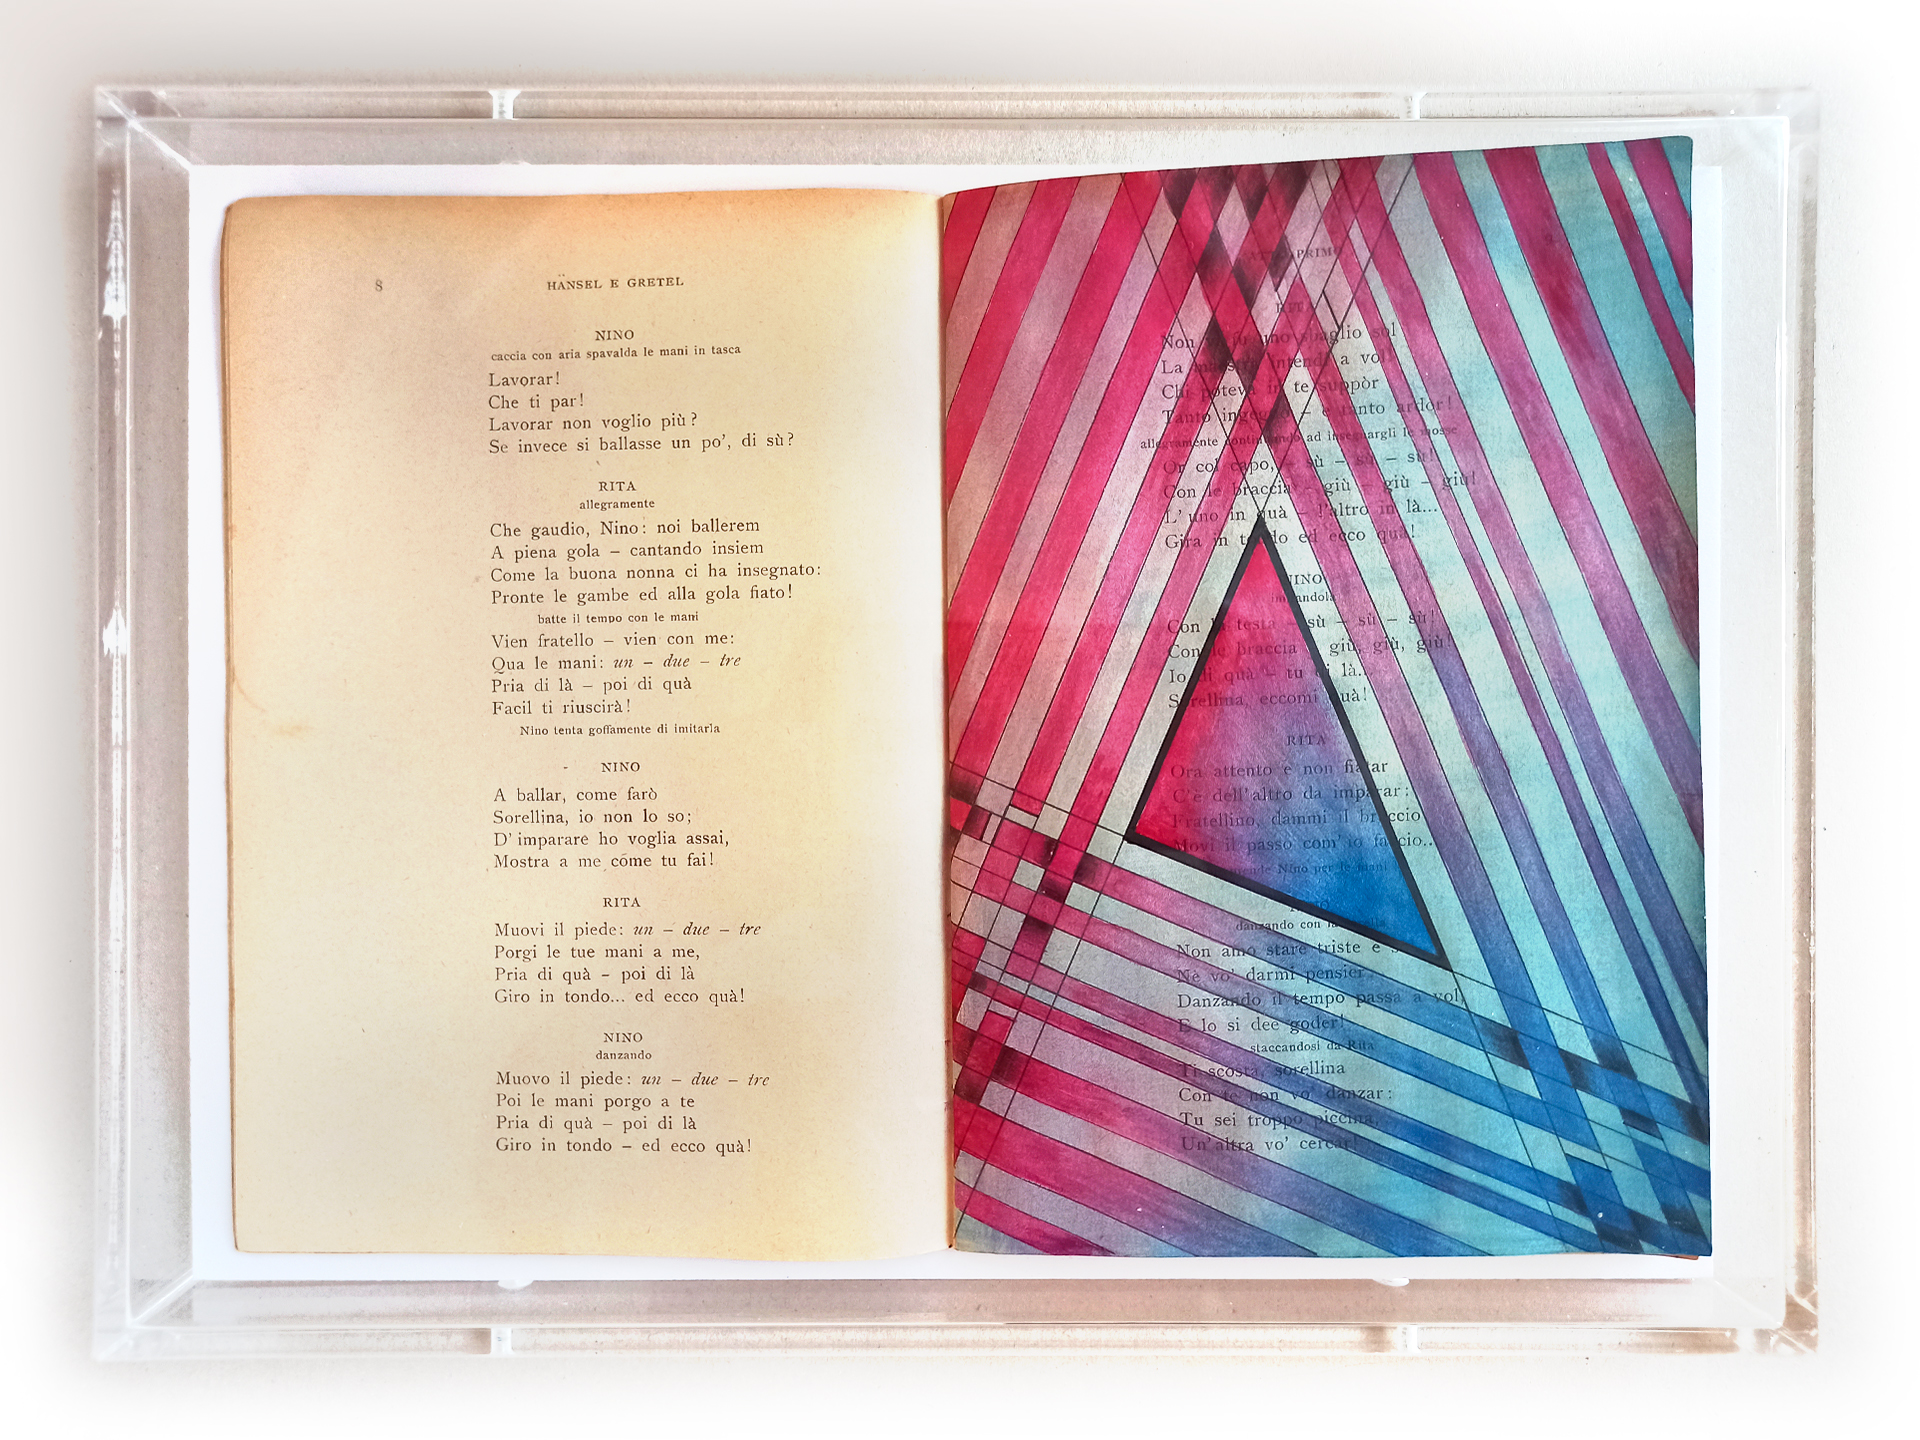 8 HÄNSEL E GRETEL
NINO
caccia con aria spavalda le mani in tasca
Lavorar!
Che ti par!
Lavorar non voglio più?
Se invece si ballasse un po', di sù?
RITA
allegramente
Che gaudio, Nino: noi ballerem
A piena gola – cantando insiem
Come la buona nonna ci ha insegnato:
Pronte le gambe ed alla gola fiato!
batte il tempo con le mani
Vien fratello – vien con me:
Qua le mani: un – due – tre
Pria di là – poi di quà
Facil ti riuscirà!
Nino tenta goffamente di imitarla
- NINO
A ballar, come farò
Sorellina, io non lo so;
D' imparare ho voglia assai,
Mostra a me come tu fai!
RITA
Muovi il piede: un – due – tre
Porgi le tue mani a me,
Pria di quà – poi di là
Giro in tondo... ed ecco quà!
NINO
danzando
Muovo il piede: un – due – tre
Poi le mani porgo a te
Pria di quà – poi di là
Giro in tondo – ed ecco quà!
ATTO PRIMO
RITA
Non sol
La intende a vol!
Chi poteva in te suppòr
Tanto ingegno – e tanto ardor!
allegramente continuando ad insegnargli le mosse
Or col capo, – sù – sù – sù!
Con le braccia – giù – giù – giù!
L' uno in quà – l'altro in là...
Gira in tondo ed ecco quà!
NINO
imitandola
Con la testa – sù – sù – sù!
Con le braccia – giù, giù, giù!
Io di quà – tu di là...
Sorellina, eccomi quà!
RITA
Ora attento e non fiatar
C'è dell'altro da imparar:
Fratellino, dammi il braccio
Movi il passo com' io faccio...
prende Nino per le mani
danzando con la
Non amo stare triste e
Nè vo' darmi pensier
Danzando il tempo passa a vol,
E lo si dee goder!
staccandosi da Rita
Ti scosta, sorellina
Con te non vo' danzar:
Tu sei troppo piccina,
Un' altra vo' cercar!